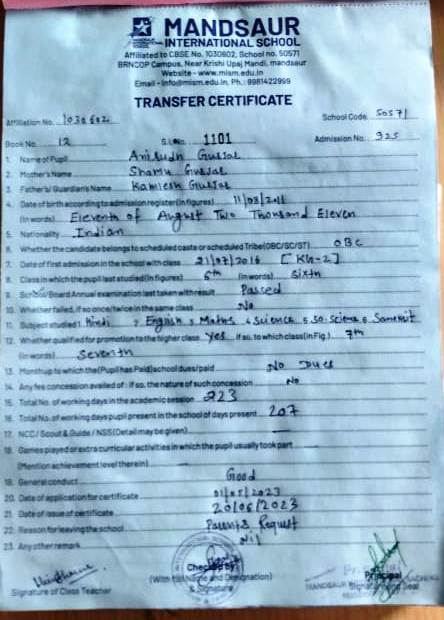 MANDSAUR
INTERNATIONAL SCHOOL
Affiliated to CBSE No. 1030602, School no. 50571
BRNCOP Campus, Near Krishi Upaj Mandi, mandsaur
Website - www.mism.edu.in
Email - info@mism.edu.in, Ph.: 8981422999
TRANSFER CERTIFICATE
Affiliation No. 1030602 School Code. 50571
Book No. 12 S.l. No. 1101 Admission No. 325
1. Name of Pupil Anirudh Gurjar
2. Mother's Name Shamu Gurjar
3. Father's/ Guardian's Name Kamlesh Gurjar
4. Date of birth according to admission register (in figures) 11/08/2011
(in words) Eleventh of August Two Thousand Eleven
5. Nationality Indian
6. Whether the candidate belongs to scheduled caste or scheduled Tribe (OBC/SC/ST) OBC
7. Date of first admission in the school with class 21/07/2016 [KG-2]
8. Class in which the pupil last studied (In figures) 6th (in words) sixth
9. School/Board Annual examination last taken with result Passed
10. Whether failed, if so once/twice in the same class No
11. Subject studied 1. Hindi 2 English 3 Maths 4 Science 5 So. Science 6 Sanskrit
12. Whether qualified for promotion to the higher class Yes if so, to which class (in Fig.) 7th
(in words) Seventh
13. Month up to which the (Pupil has Paid) school dues/paid No Dues
14. Any fee concession availed of : if so, the nature of such concession No
15. Total No. of working days in the academic session 223
16. Total No. of working days pupil present in the school of days present 207
17. NCC/ Scout & Guide / NSS (Detail may be given) —
18. Games played or extra curricular activities in which the pupil usually took part
(Mention achievement level therein) —
19. General conduct Good
20. Date of application for certificate 01/05/2023
21. Date of issue of certificate 20/06/2023
22. Reason for leaving the school Parents Request
23. Any other remark Nil
Signature of Class Teacher
Checked By
(With full Name and Designation)
& Signature
Principal
Signature and Seal